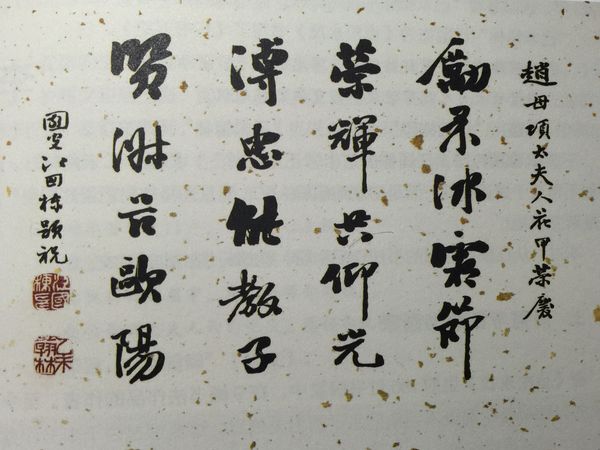 趙母項太夫人花甲榮慶
勵冰霜節
榮輝共仰光
忠能教子
賢淑歐陽
江國棟題祝
翰林